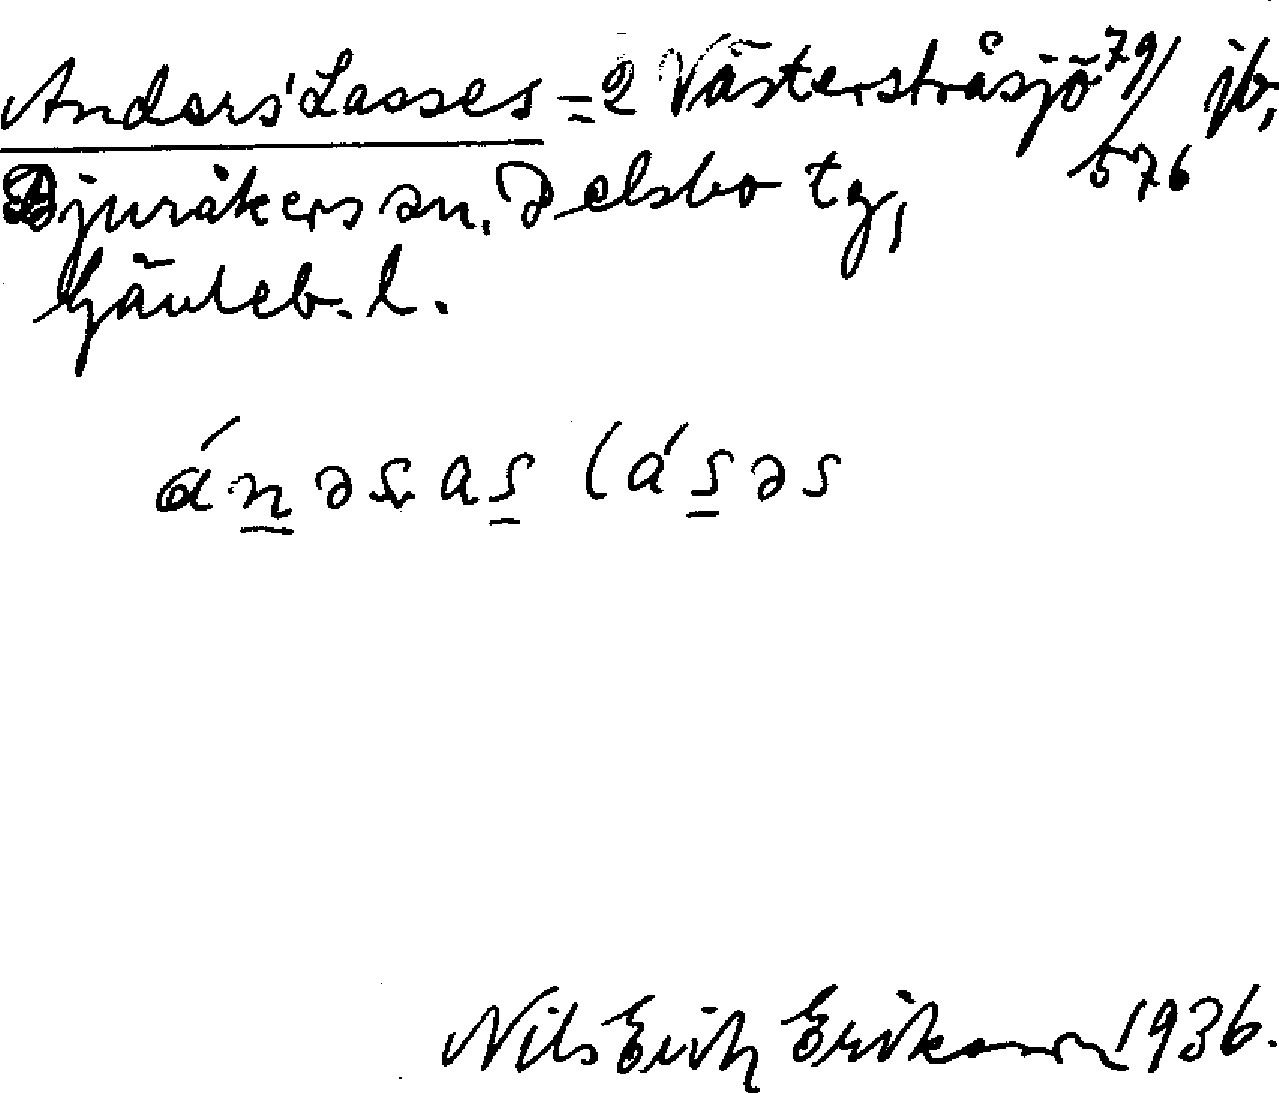 Anders' Lasses = 2 Västerstråsjö 79/576 jb,
Bjuråkers sn. Delsbo tg,
Gävleb. l.
Nils Erich Erikson 1936.